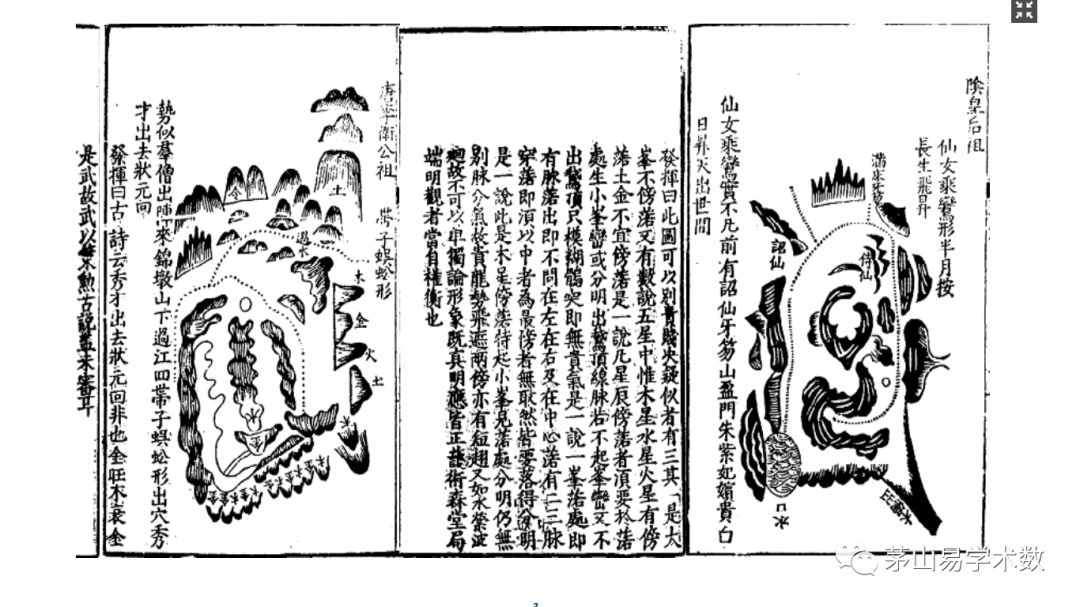 陰皇后祖
仙女乘鸞形半月按
長生飛昇
滿牀牙笏
詔仙
侍仙
水口
仙女乘鸞實不凡前有詔仙牙笏山盈門朱紫妃嬪貴白
日昇天出世間
發揮曰此圖可以別貴賤火疑似者有三其一是大
峯不傍落又有數說五星中惟木星水星火星有傍
落土金不宜傍落是一說凡星辰傍落者須要於落
處生小峯巒或分明出鵞頂線脉若不起峯巒又不
出鵞頂只模糊鶻突即無貴氣是一說一峯落處即
有脉落出即不問在左在右及在中心落有二三脉
穿落即須以中者為最傍者無取然皆要落得分明
是一說此是木星傍落待起小峯見落處分明仍無
別脉分氣故貴龍勢飛遮兩傍亦有短趐又如水縈波
故不可以單獨論形象既真明應皆正術森堂局
端明觀者當自權衡也
李衛公祖
帶子蜈蚣形
土
金
過水
木
金
火
土
金
勢似羣僧出陣來錦墩山下過江四帶子蜈蚣形出穴秀
才出去狀元回
發揮曰古詩云秀才出去狀元回非也金旺木衰金
是武故武以勲古說蓋未審耳
茅山易学术数